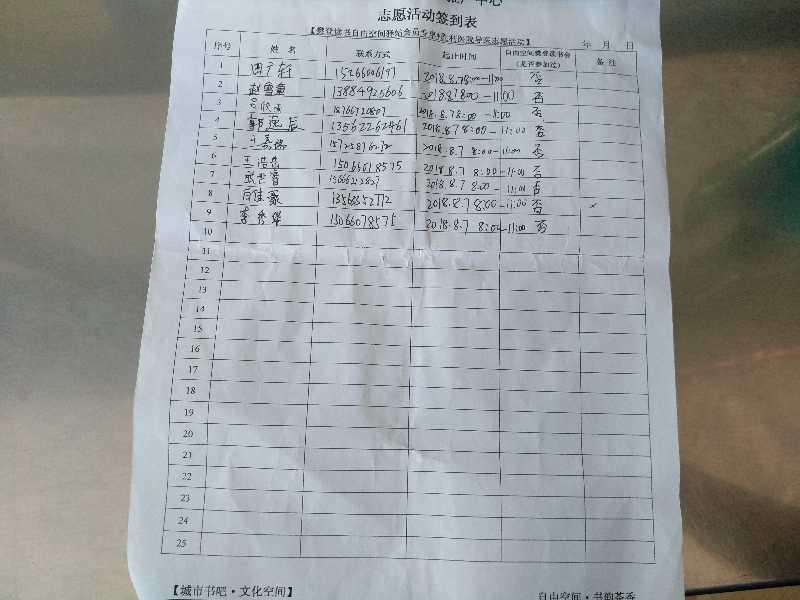 中心
志愿活动签到表
【樊登读书自由空间驿站会员 活动】
年 月 日
序号 姓名 联系方式 起止时间 自由空间樊登读书会（是否参加过） 备注
1 15266006197 2018.8.7 8:00-11:00 否
2 赵雪童 13884925606 2018.8.7 8:00-11:00 否
3 2018.8.7 8:00-11:00 否
4 郭逸辰 13562262461 2018.8.7 8:00-11:00 否
5 2018.8.7 8:00-11:00 否
6 王浩然 15065618575 2018.8.7 8:00-11:00 否
7 武世睿 2018.8.7 8:00-11:00 否
8 2018.8.7 8:00-11:00 否
9 李秀华 13066078575 2018.8.7 8:00-11:00 否
10
11
12
13
14
15
16
17
18
19
20
21
22
23
24
25
【城市书吧·文化空间】
自由空间·书韵茶香